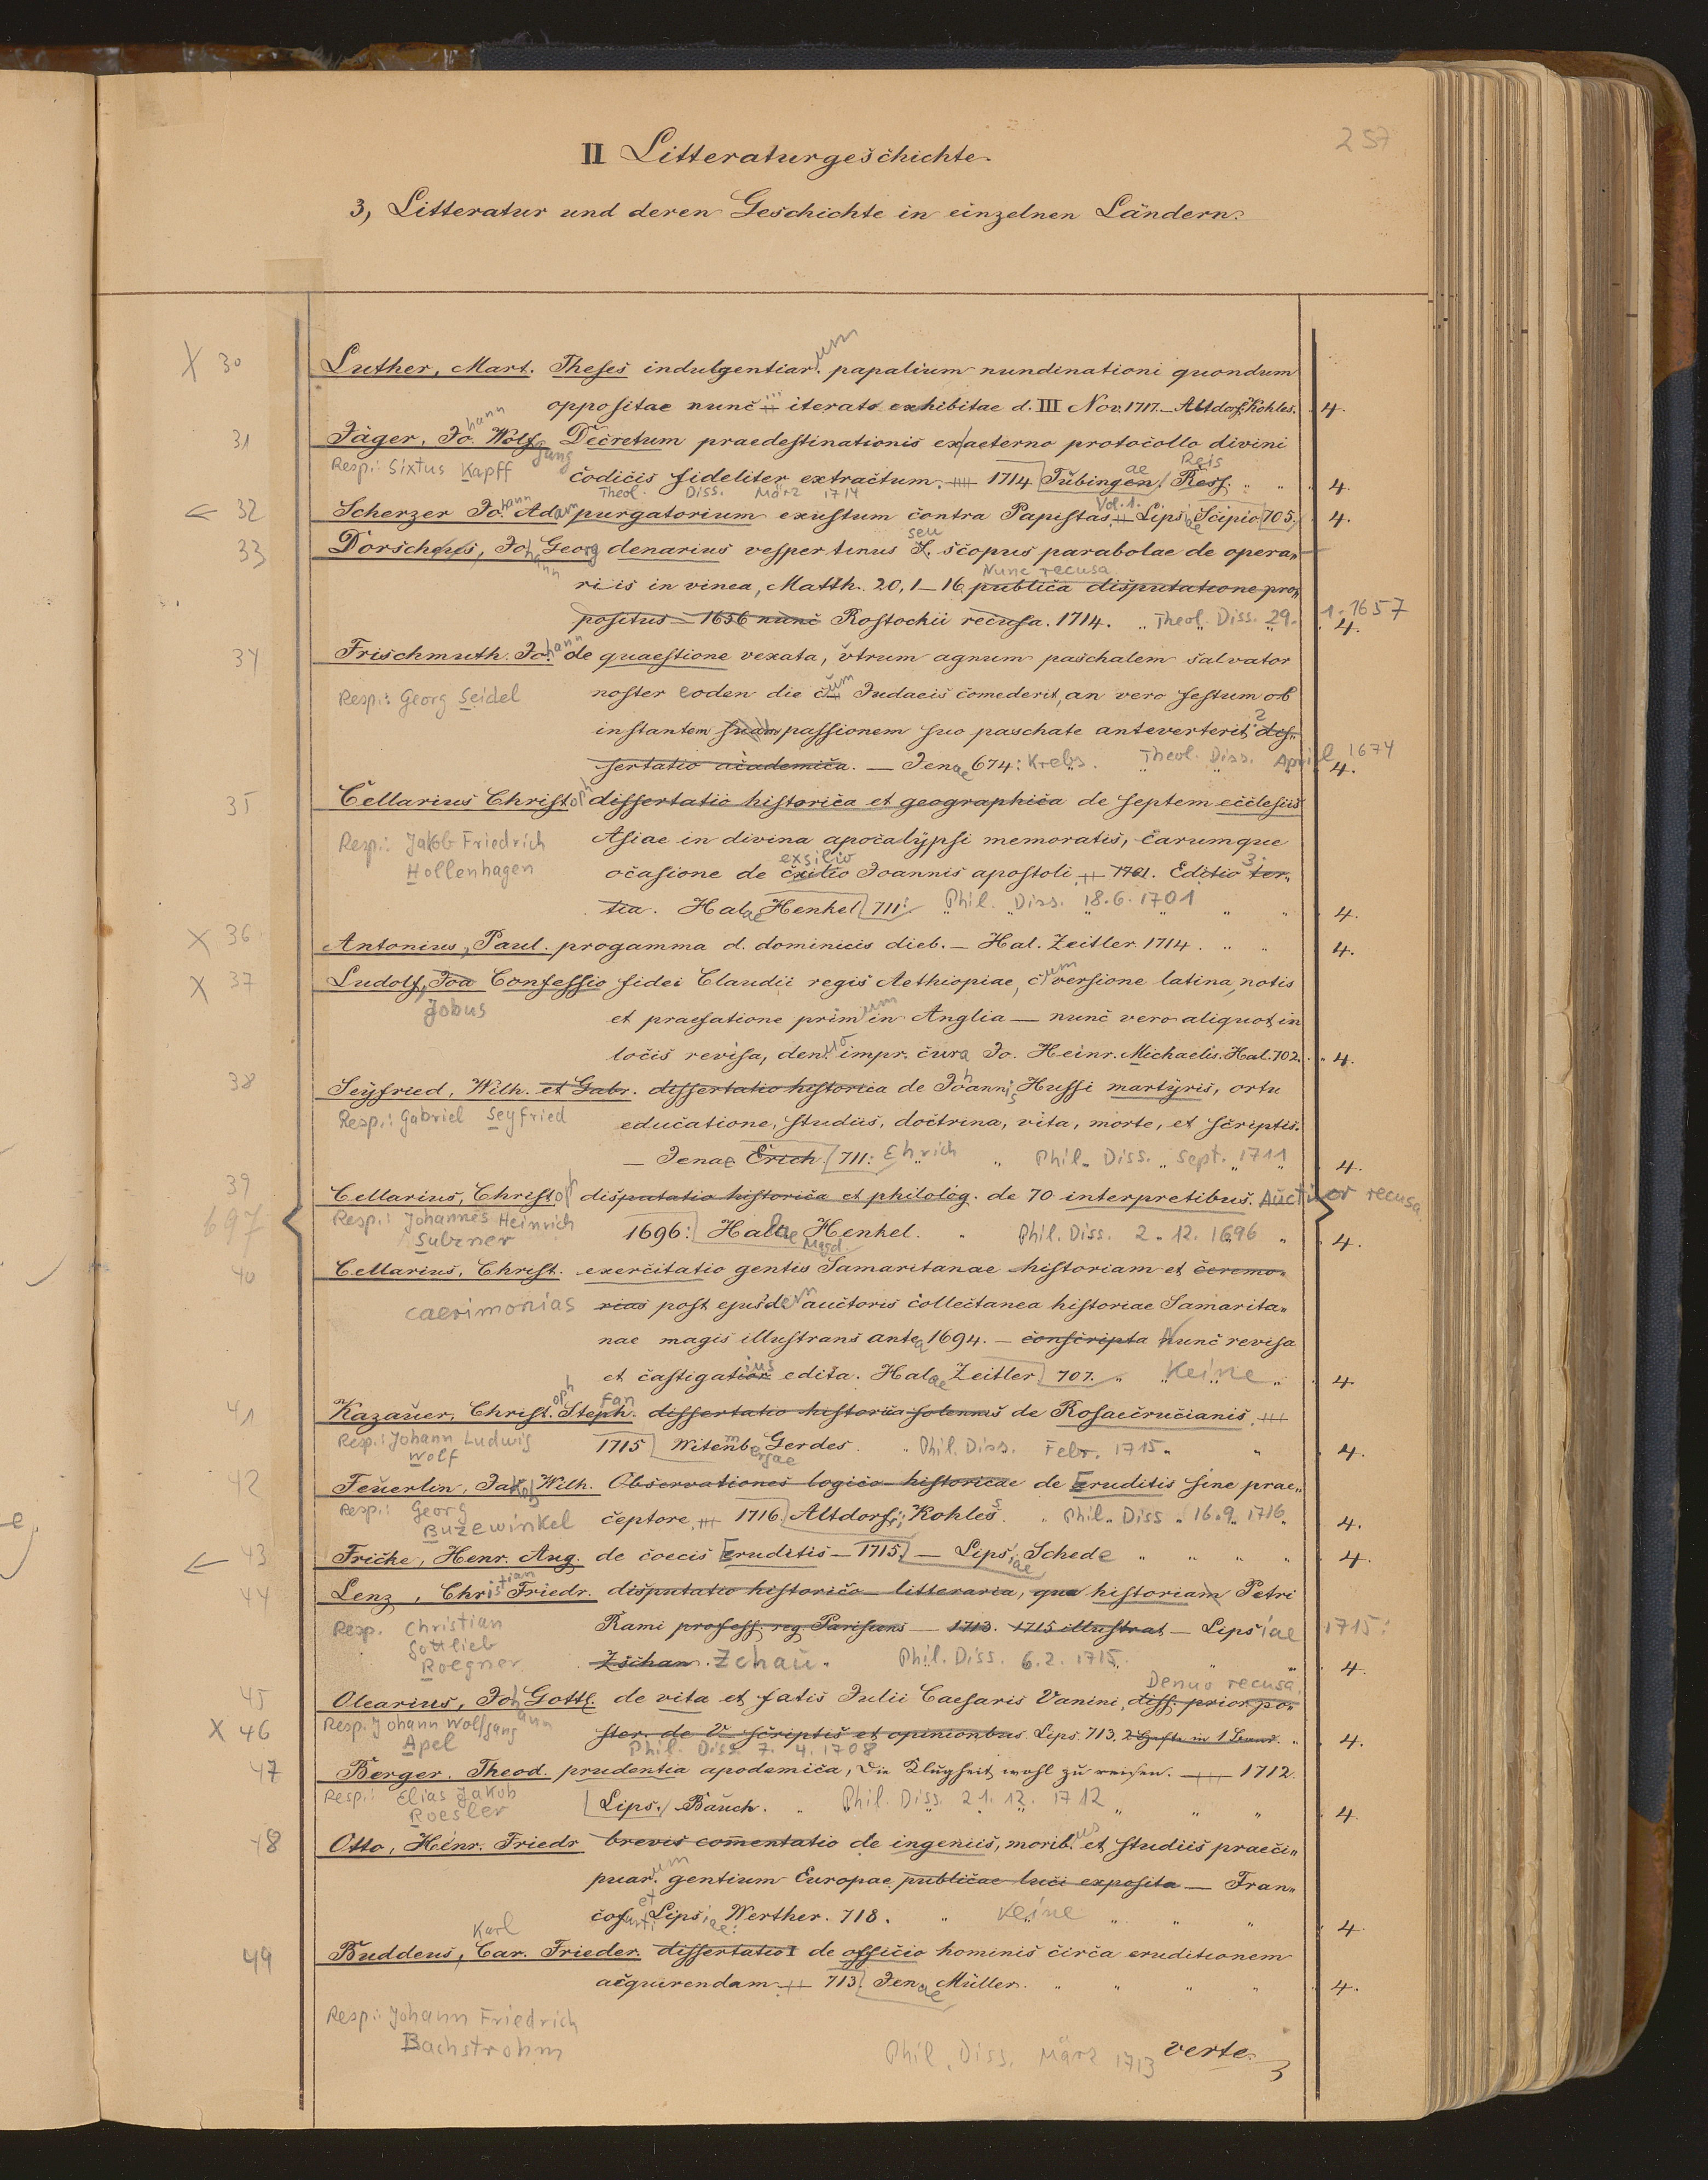 257
II Litteraturgeschichte.
3, Litteratur und deren Geschichte in einzelnen Ländern.
X 30 Luther, Mart. Theses indulgentiar.um papalium nundinationi quondum
oppositae nunc iterato exhibitae d. III Nov. 1717. Altdorf, Kohles. 4.
31 Jäger, Johann Wolfgang Decretum praedestinationis ex aeterno protocollo divini
Resp.: Sixtus Kapff codicis fideliter extractum. 1714 Tübingen ae Ress. Reis 4.
Theol. Diss. März 1714
32 Scherzer Johann Adam purgatorium exustum contra Papistas Vol. 1. Lipsiae Scipio 705. 4.
33 Dorscheus, Johann Georg denarius vespertinus S. seu scopus parabolae de opera„
riis in vinea, Matth. 20, 1–16 publica disputatione pro„ Nunc recusa
positus – 1656 nunc Rostochii recusa. 1714. Theol. Diss. 29. 1. 1657 4.
34 Frischmuth Johann de quaestione vexata, vtrum agnum paschalem salvator
Resp.: Georg Seidel noster eoden die cum Judaeis comederit, an vero festum ob
instantem suam passionem suo paschate anteverterit? dis„
sertatio academica. – Jenae 674: Krebs. Theol. Diss. April 1674 4.
35 Cellarius Christoph dissertatio historica et geographica de septem ecclesiis
Resp.: Jakob Friedrich Asiae in divina apocalypsi memoratis, earumque
Hollenhagen ocasione de exilio exsilio Joannis apostoli 1701. Editio ter„ 3.
tia. Halae Henkel 711: Phil. Diss. 18.6.1701 4.
X 36 Antonius, Paul. progamma d. dominicis dieb. – Hal. Zeitler. 1714. 4.
X 37 Ludolf, Joa Confessio fidei Claudii regis Aethiopiae, cum versione latina, notis
Jobus et praefatione primum in Anglia – nunc vero aliquot in
locis revisa, denuo impr. cura Jo. Heinr. Michaelis. Hal. 702. 4.
38 Seyfried, Wilh. et Gabr. dissertatio historica de Johannis Hussi martyris, ortu
Resp.: Gabriel Seyfried educatione, studiis, doctrina, vita, morte, et scriptis.
– Jenae Erich 711: Ehrich Phil. Diss. Sept. 1711 4.
39 Cellarius, Christoph disputatio historica et philolog. de 70 interpretibus. Auctior recusa.
697 Resp.: Johannes Heinrich 1696: Halae Magd. Henkel. Phil. Diss. 2. 12. 1696 4.
40 Cellarius, Christ. exercitatio gentis Samaritanae historiam et ceremo„
caerimonias nias post ejusdem auctoris collectanea historiae Samarita„
nae magis illustrans antea 1694. – conscripta Nunc revisa
et castigatior ius edita. Halae Zeitler 707. Keine 4.
41 Kazauer, Christoph Stephan dissertatio historica solennis de Rosaecrucianis.
Resp.: Johann Ludwig 1715 Witembergae Gerdes. Phil. Diss. Febr. 1715 4.
Wolf
42 Feuerlin, Jakob Wilh. Observationes logico-historicae de Eruditis sine prae„
Resp.: Georg Buzewinkel ceptore, 1716. Altdorf, Kohles. Phil. Diss. 16.9. 1716 4.
43 Fricke, Henr. Aug. de coecis Eruditis – 1715. – Lipsiae Schede 4.
44 Lenz, Christian Friedr. disputatio historico-litteraria, qua historiam Petri
Resp. Christian Rami profess. reg. Parisiens – 1713. 1715 illustrat – Lipsiae 1715:
Gottlieb
Roegner Zschau. Zchau. Phil. Diss. 6.2. 1715. 4.
45 Olearius, Joh Gottl. de vita et fatis Julii Caesaris Vanini, diss. prior, po„ Denuo recusa.
X 46 Resp. Johann Wolfgang ster. de V. scriptis et opinionbus. Lips. 713. 4.
Apel Phil. Diss. 7. 4. 1708
47 Berger. Theod. prudentia apodemica, die Klugheit wohl zu reisen. 1712.
Resp.: Elias Jakob Lips. Bauch. Phil. Diss. 21. 12. 1712 4.
Roesler
48 Otto, Heinr. Friedr brevis comentatio de ingeniis, morib.us et studiis praeci„
puar.um gentium Europae publicae luci exposita – Fran„
cofurti et Lipsiae Werther. 718. Keine 4.
49 Buddeus, Car. Karl Frieder. dissertatio I de officio hominis circa eruditionem
acquirendam 713. Jenae Müller. 4.
Resp.: Johann Friedrich
Bachstrohm Phil. Diss. März 1713 verte.